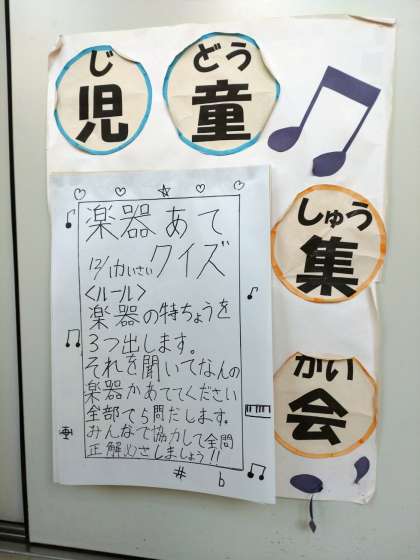 じどう
児童
しゅう
集
かい
会
楽器あて
12/1かいさいクイズ
<ルール>
楽器の特ちょうを
3つ出します。
それを聞いてなんの
楽器かあててください
全部で5問だします。
みんなで協力して全問
正解めざしましょう!!